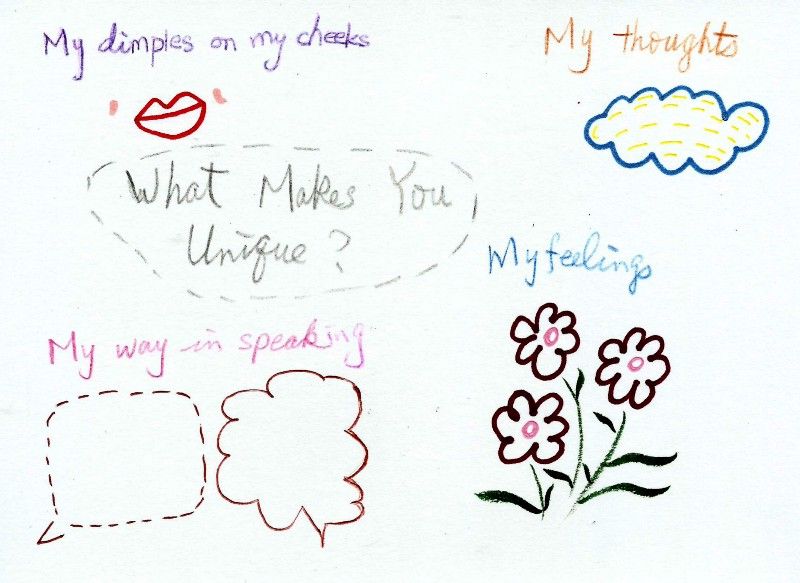 My dimples on my cheeks
My thoughts
What Makes You
Unique?
My feelings
My way in speaking